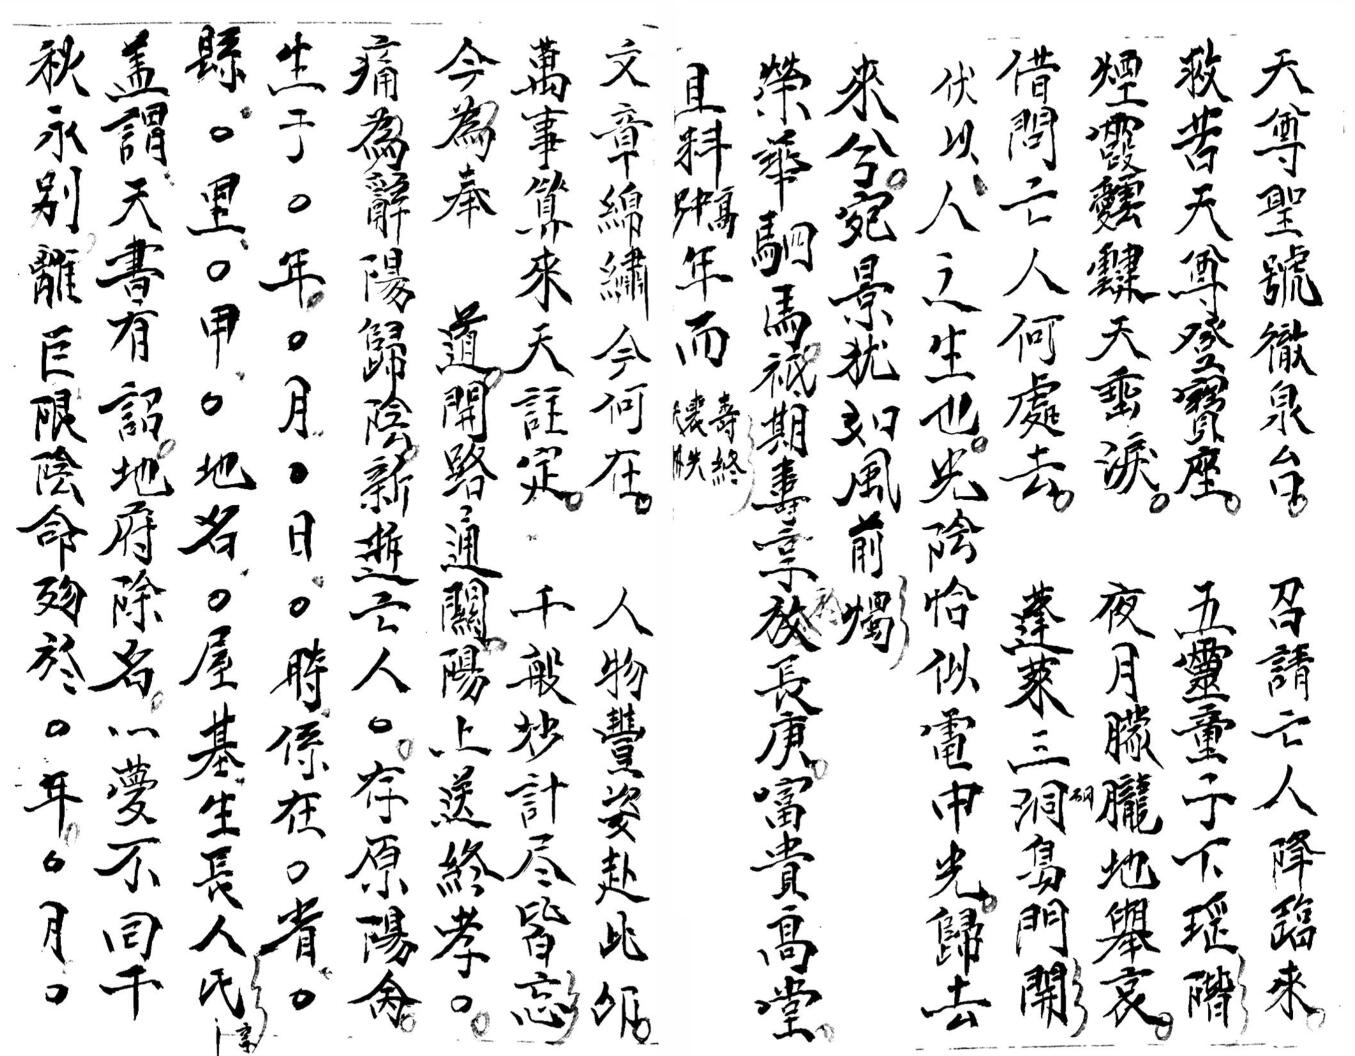 天尊聖號徹泉台。 召請亡人降臨來。
救苦天尊登寶座。 五靈童子下瑶階
煙霞靉靆天垂淚。 夜月朦朧地舉哀。
借問亡人何處去。 蓬萊三洞易門開
伏以、人之生也。光陰恰似電中光。歸去
來兮。宛景犹如風前燭
榮華駟馬。祇期壽享放長庚。富貴高堂。
且料 年而 壽終
文章綿繡今何在。 人物豐姿赴此
萬事算來天註定。 千般妙計尽皆忘
今為奉 道。開路通關。陽上送終孝。
痛為辭陽歸陰。新逝亡人。○。存原陽命。
生于○年。○月○日。○時係在○省。○
縣。○里。○甲。○地名。○屋基生長人氏
盖謂。天書有詔。地府除名。一夢不回千
秋永别。離巨限陰命殁於○年。○月○